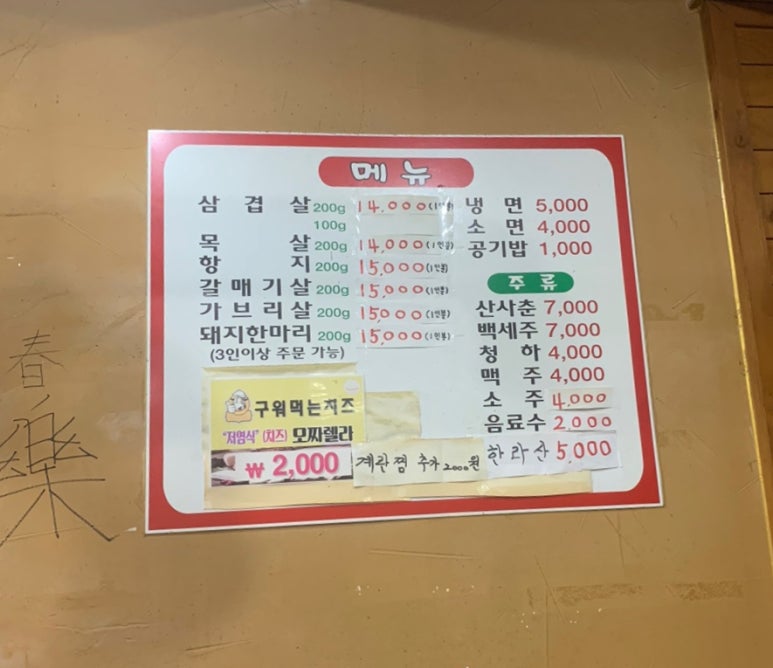 메뉴
삼겹살 200g 14,000(1인분)
100g
목살 200g 14,000(1인분)
항지 200g 15,000(1인분)
갈매기살 200g 15,000(1인분)
가브리살 200g 15000(1인분)
돼지한마리 200g 15,000(1인분)
(3인이상 주문 가능)
구워먹는치즈
"저염식" (치즈) 모짜렐라
₩ 2,000
계란찜 추가 2000원
냉면 5,000
소면 4,000
공기밥 1,000
주류
산사춘 7,000
백세주 7,000
청하 4,000
맥주 4,000
소주 4,000
음료수 2,000
한라산 5,000
春
樂